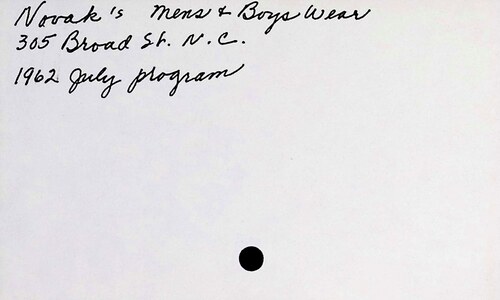 Novak's Mens & Boys Wear
305 Broad St. N.C.
1962 July program